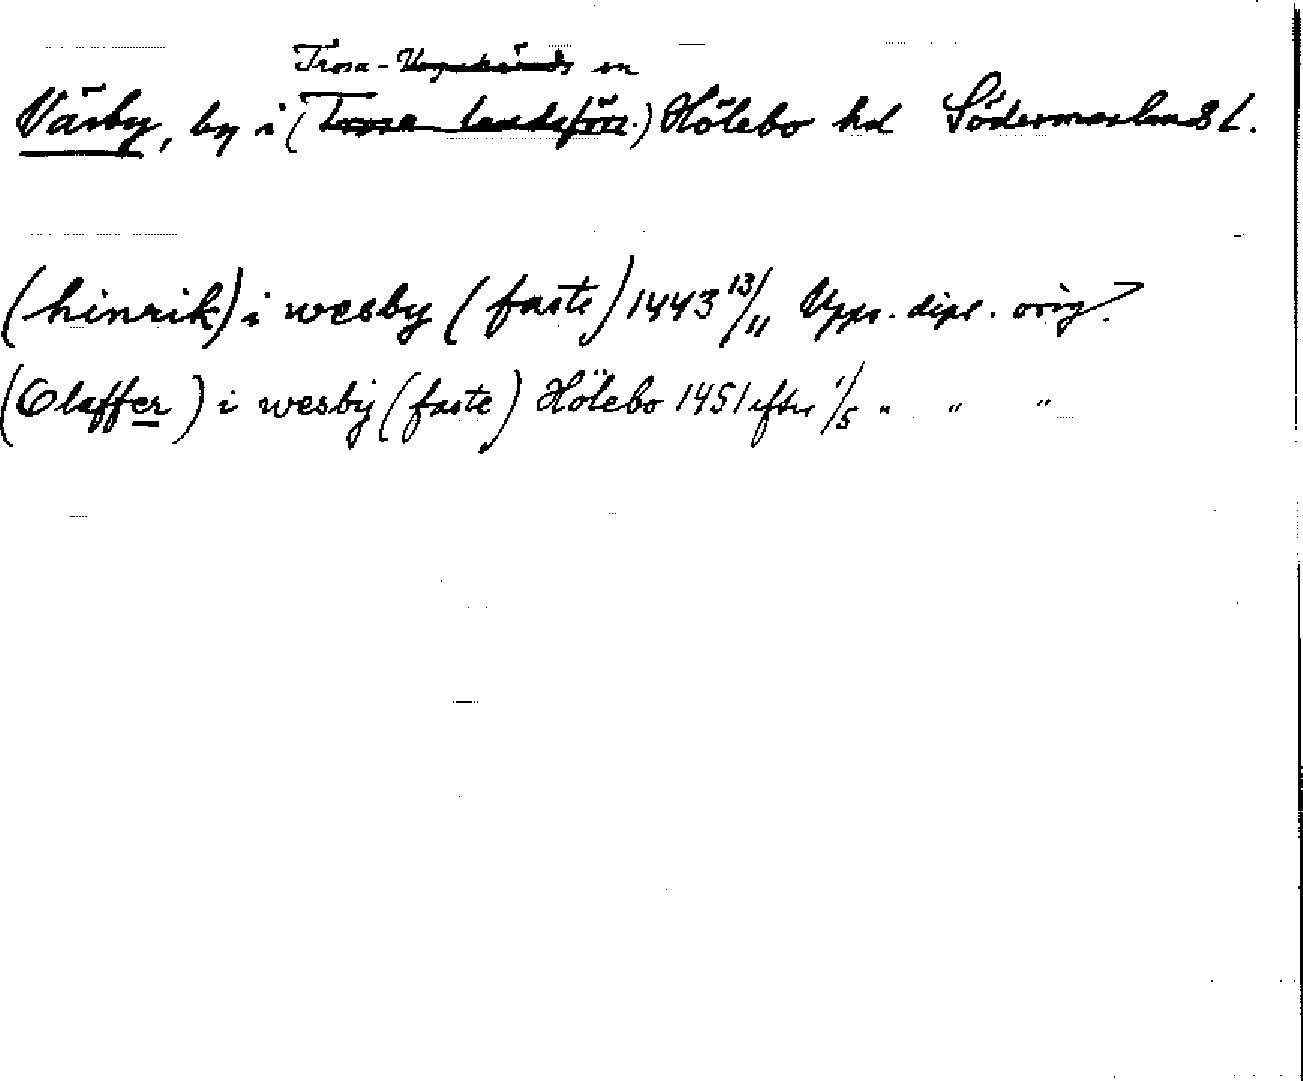 Trosa-Vagnhärads sn
Väsby, by i (Trosa landsförs.) Hölebo hd Södermanlands l.
(hinrik) i wesby (faste) 1443 13/11 Upps. dipl. orig.
(Olaffer) i wesby (faste) Hölebo 1451 efter 1/5 " " "